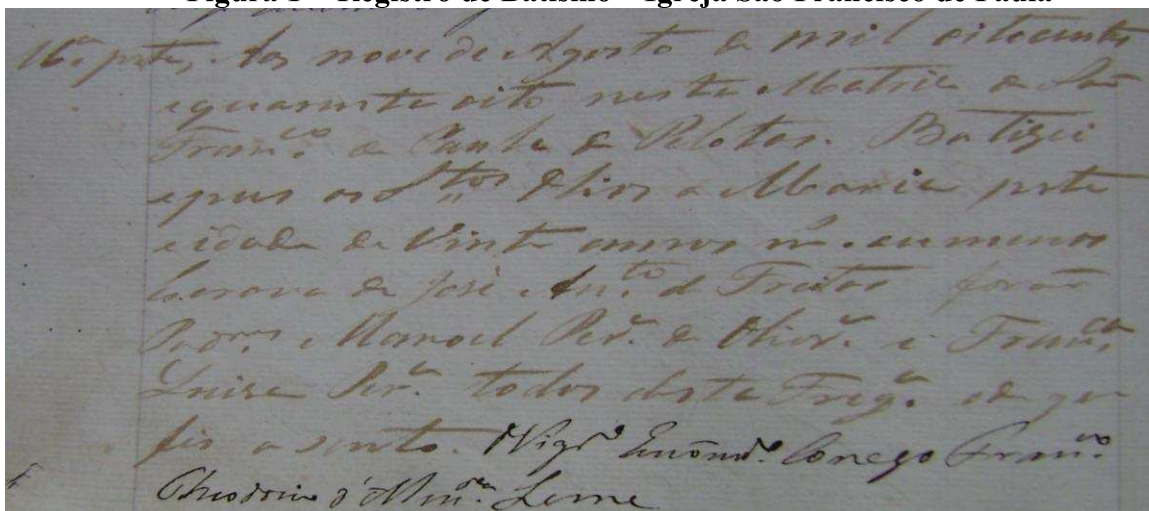 Figura 1 – Registro de Batismo – Igreja São Francisco de Paula
Mª preta, Aos nove de Agosto de mil oitocentos
e quarenta oito nesta Matriz de São
Franco. de Paula de Pelotas. Batizei
e pus os Stos Olios a Maria preta
e idade de Vinte annos
Escrava de José Anto. de Freitas forão
Padros Manoel Per. de Olivr. e Franca
Luiza Pera. todos desta Frega. do que
fis asento. O Vigro Encomdo. Conego Franco.
d'Almda. Leme